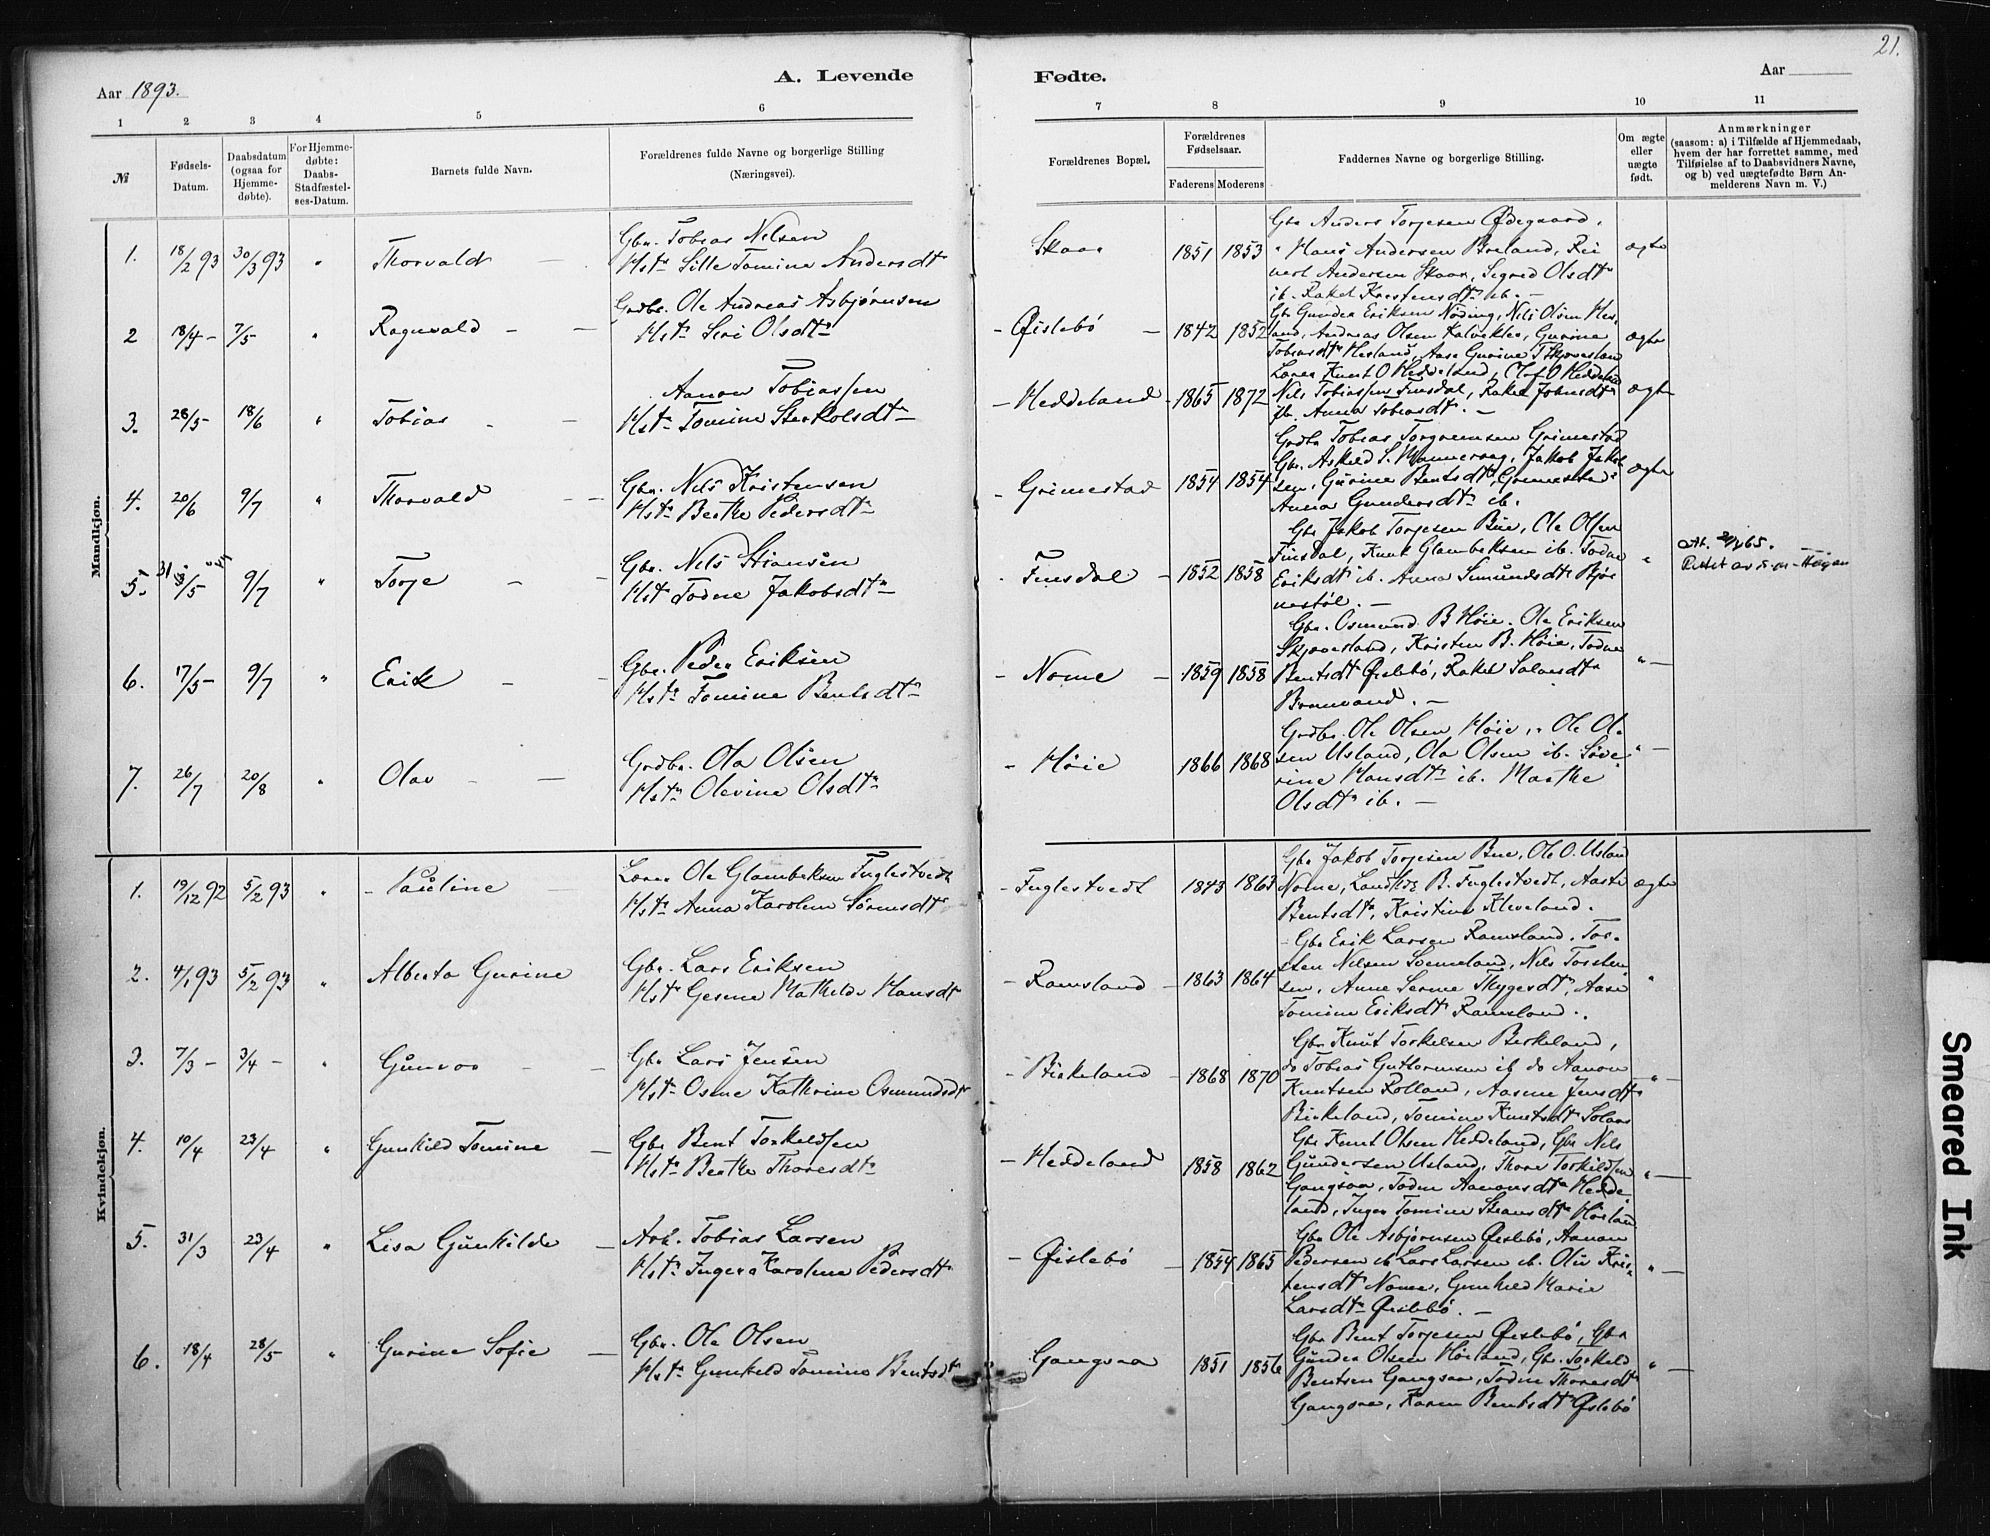 21.
Aar 1893.
A. Levende
Fødte.
Aar
1 2 3 4 5 6 7 8 9 10 11
№
Fødsels-Datum.
Daabsdatum (ogsaa for Hjemmedøbte).
For Hjemmedøbte: Daabs-Stadfæstelses-Datum.
Barnets fulde Navn.
Forældrenes fulde Navne og borgerlige Stilling (Næringsvei).
Forældrenes Bopæl.
Forældrenes Fødselsaar.
Faderens Moderens
Faddernes Navne og borgerlige Stilling.
Om ægte eller uægte født.
Anmærkninger
(saasom: a) i Tilfælde af Hjemmedaab, hvem der har forrettet samme, med Tilføielse af to Daabsvidners Navne, og b) ved uægtefødte Børn Anmelderens Navn m. V.)
Mandkjøn.
1. 18/2 93 30/3 93 " Thorvald — Gbr. Tobias Nilsen
Hstr Sille Tomine Andersdtr
Skaar 1851 1853
Gbr Anders Torjesen Ødegaard,
" Hans Andersen Breland, Rei
nert Andersen Skaar, Sigrid Olsdtr
ib. Rakel Kristensdtr ib. —
ægte
2 18/4 – 7/5 " Ragnvald – — Grdbr. Ole Andreas Asbjørnsen
Hstr Siri Olsdtr
– Øislebø — 1842 1852
Gbr Gunder Eriksen Nøding, Nils Olsen Hes
land, Andreas Olsen Kalvekleo, Gurine
Tobiasdtr Hesland, Aase Gurine T Skjævesland
ægte
3. 28/5 – 18/6 " Tobias – — Aanon Tobiassen
Hstr Tomine Sterkolsdtr
– Heddeland 1865 1872
Lærer Knut O Heddeland, Olaf O Heddeland
Nils Tobiassen Finsdal, Rakel Johnsdtr
ib. Anna Tobiasdtr. —
ægte
4. 20/6 9/7 " Thorvald – — Gbr. Nils Kristensen
Hstr Berthe Pedersdtr
– Grimestad 1854 1854
Grdbr Tobias Torgrimsen Grimestad
Gbr. Askild S. Monnerøeg, Jakob Jakob
sen, Gurine Bentsdtr, Grimestad
Anna Gundersdtr ib.
ægte
5. 31/5 9/7 " Torje – — Gbr. Nils Stiansen
Hstr Todne Jakobsdtr
– Finsdal – 1852 1858
Gbr Jakob Torjesen Bue, Ole Olsen
Finsdal, Knut Glambeksen ib. Todne
Eriksdtr ib. Anna Simundsdtr Bjør
nestøl. —
"
65.
Rettet av s.m. Høgan
6. 17/5 – 9/7 " Erik – — Gbr. Peder Eriksen
Hstr Tomine Bentsdtr
– Nome – 1859 1858
Gbr. Osmund B Høie. Ole Eriksen
Skjævesland, Kristen B. Høie, Todne
Bentsdtr Øislebø, Rakel Salvesdtr
Brunvand. —
" —
7. 26/7 20/8 " Olav – — Grdbr. Ola Olsen
Hstr Olevine Olsdtr
– Høie 1866 1868
Grdbr. Ole Olsen Høie, " Ole Ol
sen Usland, Ola Olsen ib. Søve
rine Hansdtr ib. Marthe
Olsdtr ib. —
" —
Kvindekjøn.
1. 19/12 92 5/2 93 " – Pauline — Lærer Ole Glambeksen Fuglestvedt
Hstr Anna Karoline Sørensdtr
– Fuglestvedt 1843 1863
Gbr Jakob Torjesen Bue, Ole O. Usland
Nome, Landhdr B. Fuglestvedt, Aaste
Bentsdtr, Kristine Kleveland.
ægte
2. 4/1 93 5/2 93 " Alberta Gurine Gbr. Lars Eriksen
Hstr Gesine Mathilde Hansdtr
– Ramsland – 1863 1864
– Gbr Erik Larsen Ramsland, Tor
sten Nilsen Sveneland, Nils Torsten
sen, Anne Serine Thygesdtr, Aase
Tomine Eriksdtr Ramsland.
"
3. 7/3 – 3/4 – " Gunvor – — Gbr Lars Jensen
Hstr Osine Kathrine Osmundsdtr
– Birkeland – 1868 1870
Gbr Knut Torkelsen Birkeland,
do Tobias Guttormsen ib do Aanon
Knutsen Rolland, Aasine Jensdtr
Birkeland, Tomine Knutsdtr Solaas
" —
4. 10/4 23/4 " Gunhild Tomine — Gbr Bent Torkildsen
Hstr Berthe Thoresdtr
– Heddeland 1858 1862
Gbr Knut Olsen Heddeland, Gbr Nils
Gundersen Usland, Thore Torkildsen
Gangsaa, Todne Aanonsdtr Hedde
land, Inger Tomine Stiansdtr Høiland
" —
5. 31/3 23/4 " Lisa Gunhilde — Arb. Tobias Larsen
Hstr Ingera Karoline Pedersdtr
– Øislebø – 1854 1865
Gbr Ole Asbjørnsen Øislebø, Aanon
Pedersen ib Lars Larsen ib. Oli Kris
tensdtr Nome, Gunhild Marie
Larsdtr Øislebø. —
" —
6. 18/4 28/5 " Gurine Sofie — Gbr. Ole Olsen
Hstr Gunhild Tomine Bentsdtr
– Gangsaa 1851 1856
Gbr Bent Torjesen Øislebø, Gbr
Gunder Olsen Høiland, Gbr. Torkild
Bentsen Gangsaa, Todne Thoresdtr
Gangsaa, Karen Bentsdtr Øislebø
" —
Smeared Ink